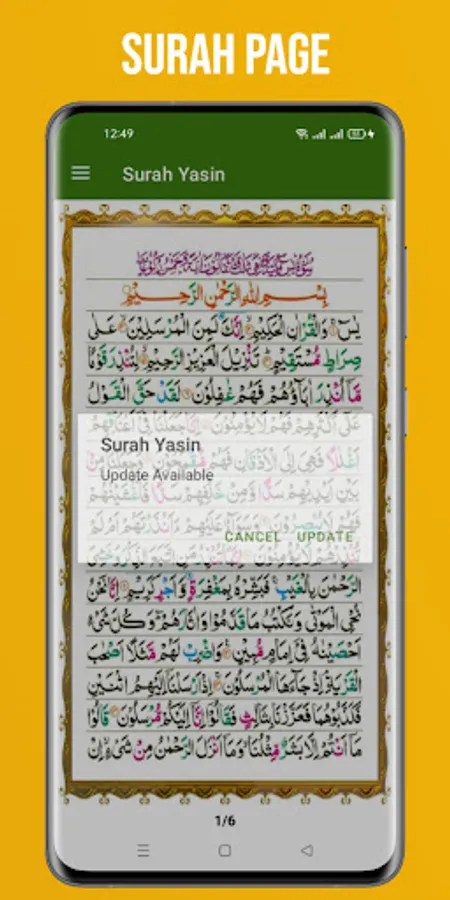 SURAH PAGE
12:49
Surah Yasin
بِسْمِ اللهِ الرَّحْمٰنِ الرَّحِيْمِ
يٰسٓ وَالْقُرْاٰنِ الْحَكِيْمِ اِنَّكَ لَمِنَ الْمُرْسَلِيْنَ عَلٰى
صِرَاطٍ مُّسْتَقِيْمٍ تَنْزِيْلَ الْعَزِيْزِ الرَّحِيْمِ لِتُنْذِرَ قَوْمًا
مَّآ اُنْذِرَ اٰبَآؤُهُمْ فَهُمْ غٰفِلُوْنَ لَقَدْ حَقَّ الْقَوْلُ
عَلٰٓى اَكْثَرِهِمْ فَهُمْ لَا يُؤْمِنُوْنَ اِنَّا جَعَلْنَا فِيْٓ اَعْنَاقِهِمْ
Surah Yasin
Update Available
CANCEL UPDATE
الرَّحْمٰنَ بِالْغَيْبِ فَبَشِّرْهُ بِمَغْفِرَةٍ وَّاَجْرٍ كَرِيْمٍ اِنَّا نَحْنُ
نُحْيِ الْمَوْتٰى وَنَكْتُبُ مَا قَدَّمُوْا وَاٰثَارَهُمْ وَكُلَّ شَيْءٍ
اَحْصَيْنٰهُ فِيْٓ اِمَامٍ مُّبِيْنٍ وَاضْرِبْ لَهُمْ مَّثَلًا اَصْحٰبَ
الْقَرْيَةِ اِذْ جَآءَهَا الْمُرْسَلُوْنَ اِذْ اَرْسَلْنَآ اِلَيْهِمُ اثْنَيْنِ
فَكَذَّبُوْهُمَا فَعَزَّزْنَا بِثَالِثٍ فَقَالُوْٓا اِنَّآ اِلَيْكُمْ مُّرْسَلُوْنَ قَالُوْا
مَآ اَنْتُمْ اِلَّا بَشَرٌ مِّثْلُنَا وَمَآ اَنْزَلَ الرَّحْمٰنُ مِنْ شَيْءٍ اِنْ
1/6